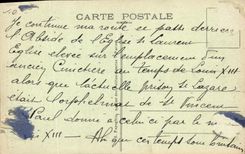 10
CARTE POSTALE
Je continue ma route et passe derrière
l'Abside de l'Eglise St Laurent
Eglise élevée sur l'emplacement d'un
ancien Cimetière au temps de Louis XIII
alors que l'actuelle prison St Lazare
était l'orphelinat de St Vincent
Paul donné à celui ci par le
XIII — Ah que ces temps sont lointains